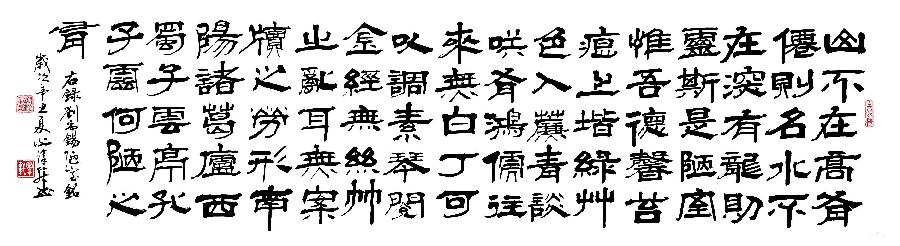 山不在高有
僊則名水不
在深有龍助
靈斯是陋室
惟吾德馨苔
痕上堦綠艸
色入簾青談
咲有鴻儒往
來無白丁可
以調素琴閱
金經無絲竹
之亂耳無案
牘之勞形南
陽諸葛廬西
蜀子雲亭孔
子雲何陋之
有
右錄劉禹錫陋室銘
歲次辛丑夏